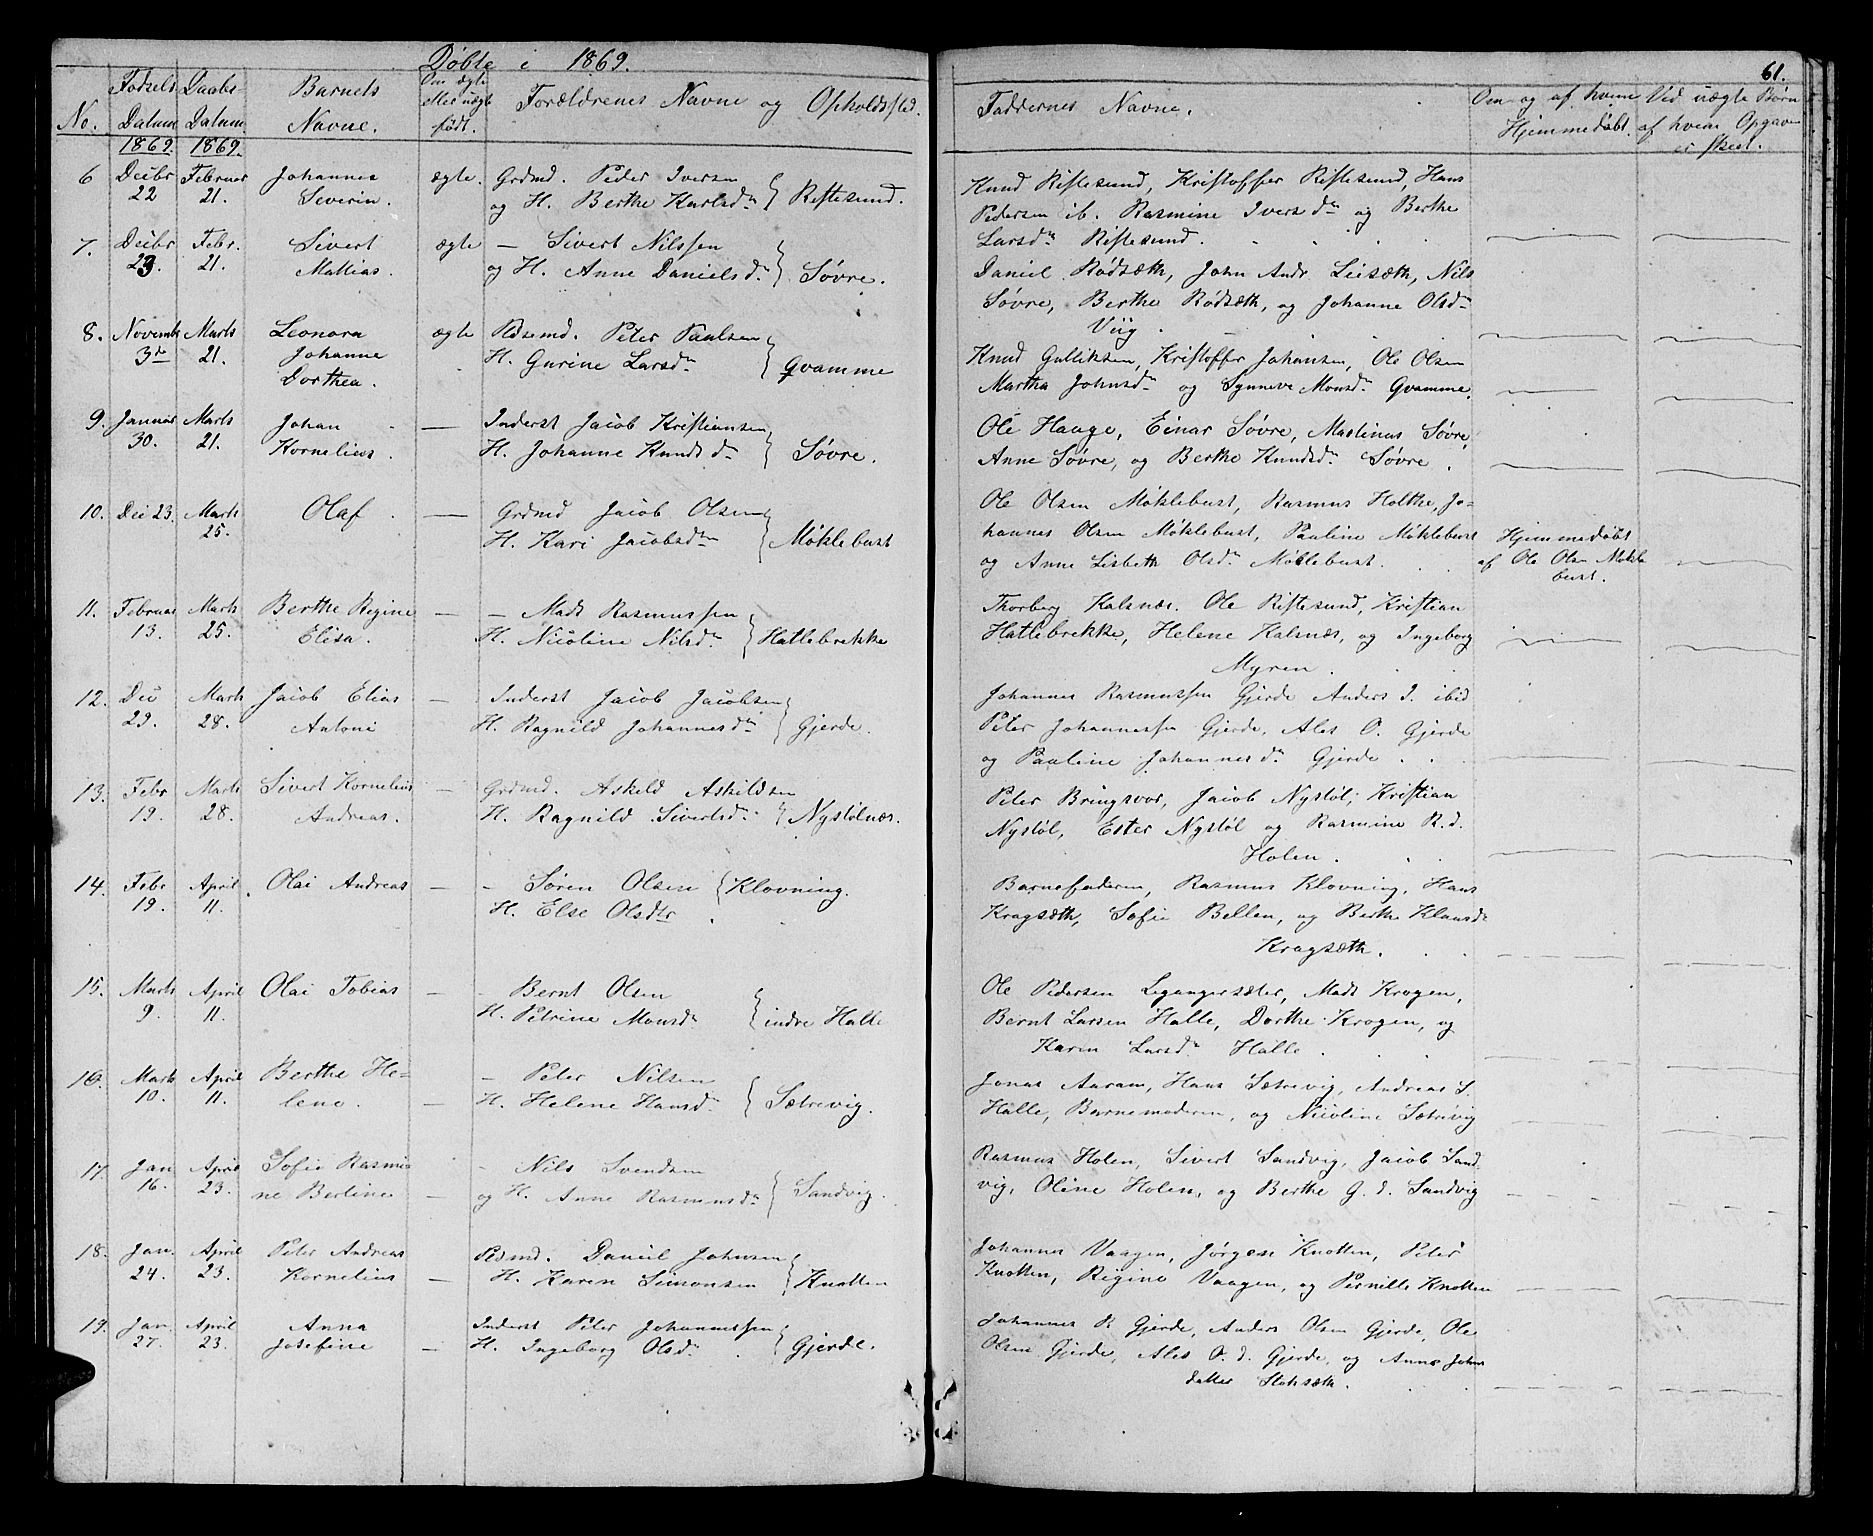 Døbte i 1869.
61.
No.
Fødsels Datum 1869.
Daabs- Datum 1869.
Barnets Navne.
Om ægte eller uægte født.
Forældrenes Navne og Opholdssted.
Faddernes Navne.
Om og af hvem Hjemmedøbt.
Ved uægte Børn af hvem Opgaven er skeet.
6 Decbr Februar Johannes ægte. Grdmd. Peder Iversen
22 21. Severin. og H. Berthe Karlsdr Riftesund.
Knud Riftesund, Kristoffer Riftesund, Hans
Pedersen ib. Rasmine Iversdr og Berthe
Larsdr Riftesund.
7. Decbr Febr. Sivert ægte — Sivert Nilssen
23 21. Mathias. og H. Anne Danielsdr Søvre.
Daniel Rødsæth, John Andr. Leisæth, Nils
Søvre, Berthe Rødsæth, og Johanne Olsdr
Viig.
8. Novembr Marts Leonora ægte Pdsemd. Peter Paulsen
3de 21. Johanne H. Gurine Larsdr Qvamme
Dorthea.
Knud Gulliksen, Kristoffer Johansen, Ole Olsen
Martha Johnsdr og Synneve Monsdr Qvamme.
9. Januar Marts Johan — Inderst Jacob Kristiansen
30. 21. Kornelius. H. Johanne Knudsdr Søvre.
Ole Hauge, Einar Søvre, Martinus Søvre,
Anne Søvre, og Berthe Knudsdr Søvre.
10. Dec 23. Marts Olaf — Grdmd Jacob Olsen
25. H. Kari Jacobsdtr Møklebust
Ole Olsen Møklebust, Rasmus Holthe, Jo-
hannes Olsen Møklebust, Pauline Møklebust
og Anne Lisbeth Olsdr Møklebust.
Hjemmedøbt
af Ole Olsen Møkle
bust.
11. Februar Marts Berthe Regine — — Mads Rasmussen
13. 25. Elisa. H. Nicoline Nilsdr Hatlebrekke
Thorberg Kalsnæs. Ole Riftesund, Kristian
Hatlebrekke, Helene Kalsnæs, og Ingeborg
Myren.
12. Dec Marts Jacob Elias — Inderst Jacob Jacobsen
29. 28. Antoni H. Ragnild Johannesdr Gjerde.
Johannes Rasmussen Gjerde Anders J. ibid
Peter Johannessen Gjerde, Ales O. Gjerde
og Pauline Johannesdr Gjerde.
13. Febr Marts Sivert Kornelius — Grdmd. Askeld Askildsen
19. 28. Andreas. H. Ragnild Sivertsdr Nystølnæs.
Peter Bringsvor, Jacob Nystøl, Kristian
Nystøl, Ester Nystøl og Rasmine R. d.
Holen.
14. Febr April Olai Andreas — — Søren Olsen Klovning.
19. 11. H. Else Olsdtr
Barnefaderen, Rasmus Klovning, Hans
Kragsæth, Sofie Bellen, og Berthe Klausdr
Kragsæth.
15. Marts April Olai Tobias — — Bernt Olsen
9. 11. H. Petrine Monsdr indre Halle
Ole Pedersen Legangersæter, Mads Krogen,
Bernt Larsen Halle, Dorthe Krogen, og
Karen Larsdr Halle.
16. Marts April Berthe He- — Peter Nilsen
10. 11. lene. — H. Helene Hansdr Sætrevig.
Jonas Aaram, Hans Sætrevig, Andreas S.
Halle, Barnemoderen, og Nicoline Sætrevig
17. Jan April Sofie Rasmi- — Nils Svendsen
16. 23. ne Berline — og H. Anne Rasmusdr Sandvig.
Rasmus Holen, Sivert Sandvig, Jacob Sand
vig, Oline Holen, og Berthe G. d. Sandvig
18. Jan. April Peter Andreas Pdsmd. Daniel Johnsen
24. 23. Kornelius — H. Karen Simonsen Knotten
Johannes Vaagen, Jørgen Knotten, Peter
Knotten, Regine Vaagen, og Pernille Knotten
19. Jan. April Anna Inderst Peter Johannessen
27. 23. Josefine — H. Ingeborg Olsdr Gjerde.
Johannes R Gjerde, Anders Olsen Gjerde, Ole
Olsen Gjerde, Ales O. d. Gjerde, og Anne Johns
datter Stoksæth.